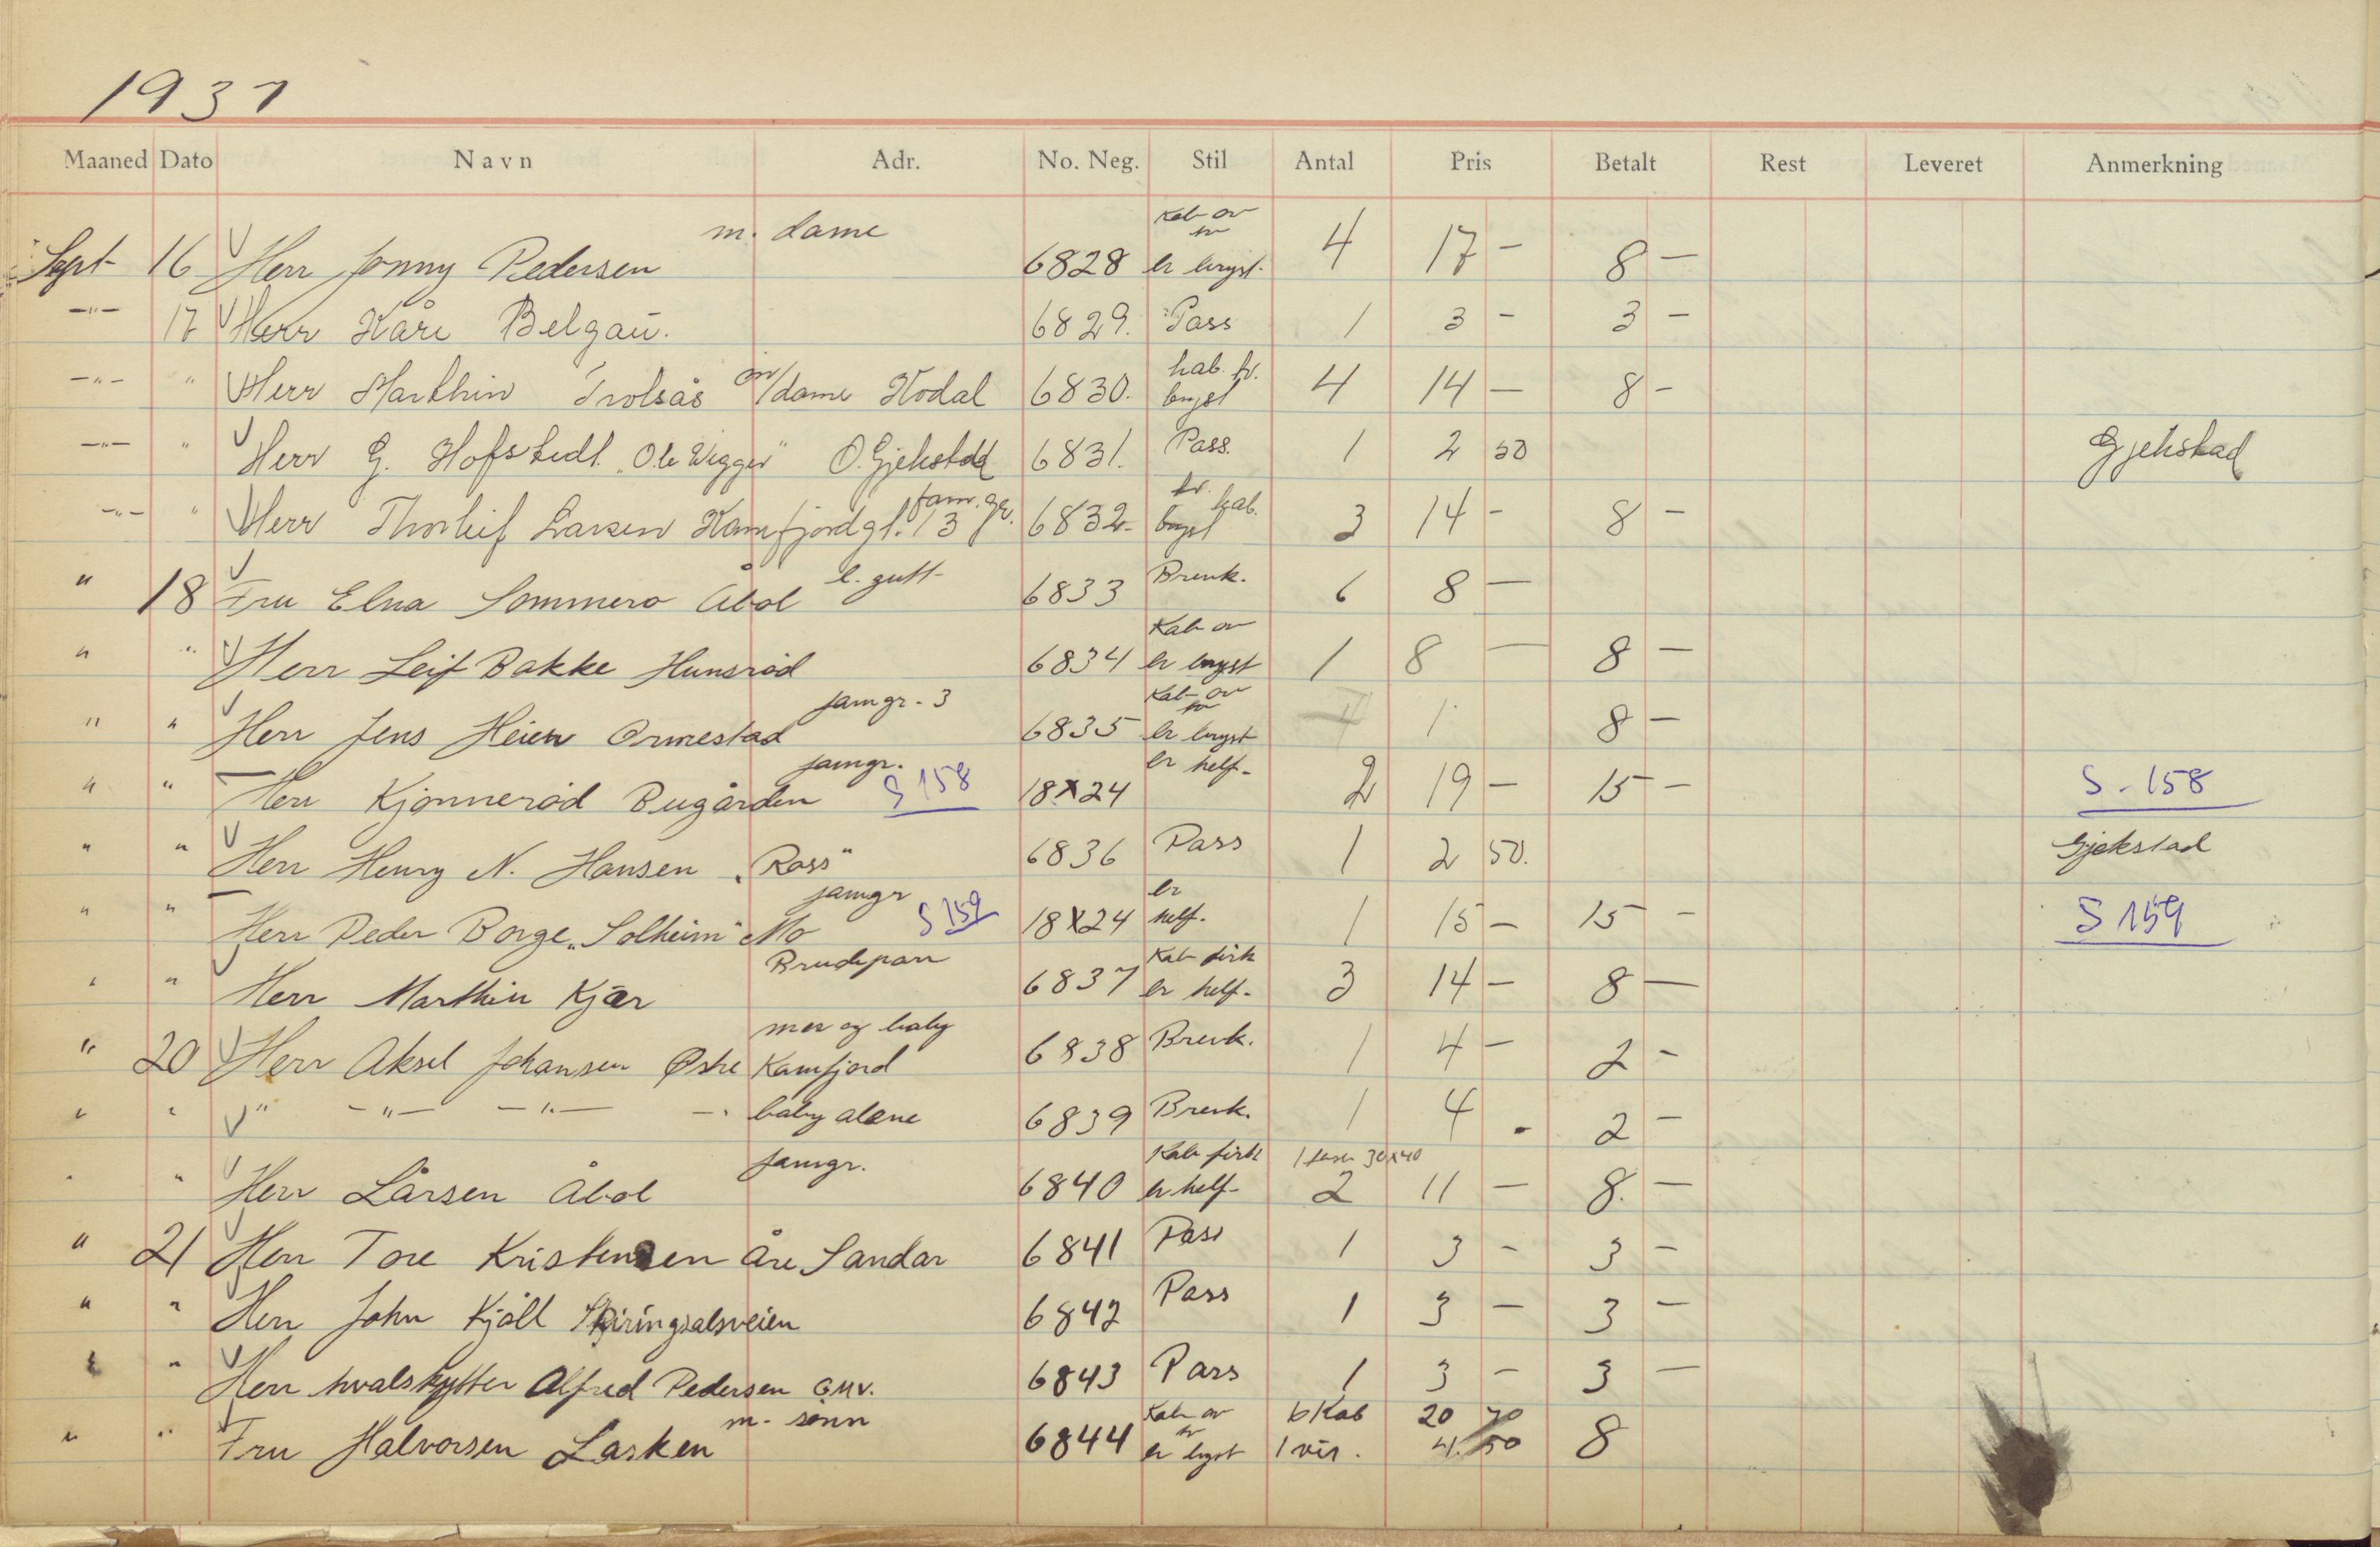 1937
Maaned Dato Navn Adr. No. Neg. Stil Antal Pris Betalt Rest Leveret Anmerkning
m. dame Kab ov
Sept 16 V Herr Jonny Pedersen 6828 er bryst. 4 17 - 8 -
-"- 17 V Herr Kåre Belgau. 6829. Pass 1 3 - 3 -
-"- " V Herr Marthin Trolsås m/dame Kodal 6830. kab. fv. bryst 4 14 - 8 -
-"- " V Herr G. Hofstedt. "Ole Wegger" O. Gjekstad 6831. Pass. 1 2 50 Gjekstad
-"- " V Herr Thorleif Larsen Kamfjordgt. 13 fam. gr. 6832- kab. bryst 3 14 - 8 -
" 18 V Fru Elna Sommero Åbol l. gutt- 6833 Brevk. 6 8 -
" " V Herr Leif Bakke Hunsrød 6834 Kab ov er bryst 1 8 - 8 -
" " V Herr Jens Heien Ormestad famgr. 3 6835 Kab ov er bryst 4 1 8 -
" " Herr Kjønnerød Bugården famgr. S 158 18x24 er helf- 2 19 - 15 - S. 158
" " V Herr Henry N. Hansen "Ross" 6836 Pass 1 2 50. Gjekstad
" " Herr Peder Borge "Solheim" Mo famgr S 159 18x24 er helf. 1 15 - 15 - S 159
" " Herr Marthin Kjær Brudepar 6837 Kab er helf- 3 14 - 8 -
mor og baby
" 20 V Herr Aksel Johansen Østre Kamfjord 6838 Brevk. 1 4 - 2 -
" " V " -"- -"- -" baby alene 6839 Brevk. 1 4 - 2 -
" " V Herr Larsen Åbol famgr. 6840 Kab er helf- 30x40 2 11 - 8. -
" 21 V Herr Tore Kristensen Åre Sandar 6841 Pass 1 3 - 3 -
" " V Herr John Kjøll Skiringsalsveien 6842 Pass 1 3 - 3 -
" " V Herr hvalskytter Alfred Pedersen GMV. 6843 Pass 1 3 - 3 -
m. sønn Kab ov 6 Kab 20
" " Fru Halvorsen Lasken 6844 er bryst 1 vis. 4. 50 8